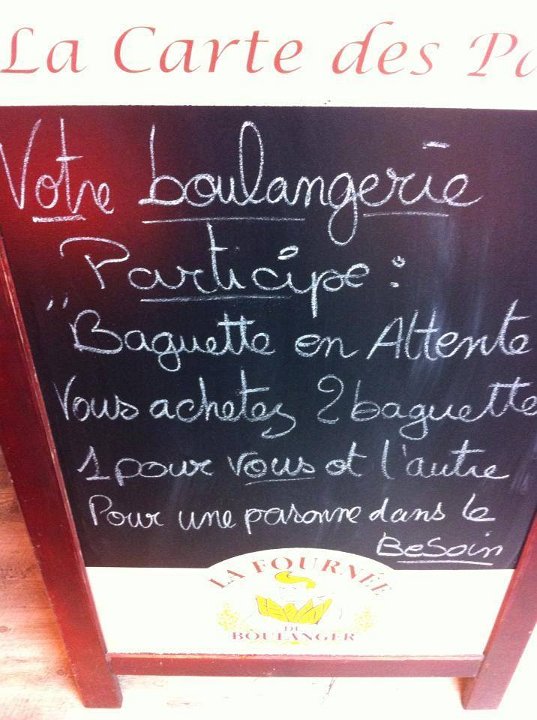 La Carte des Pa
Votre boulangerie
Participe :
"Baguette en Attente
Vous achetez 2 baguette
1 pour vous et l'autre
Pour une personne dans le
Besoin
LA FOURNÉE
DU
BOULANGER